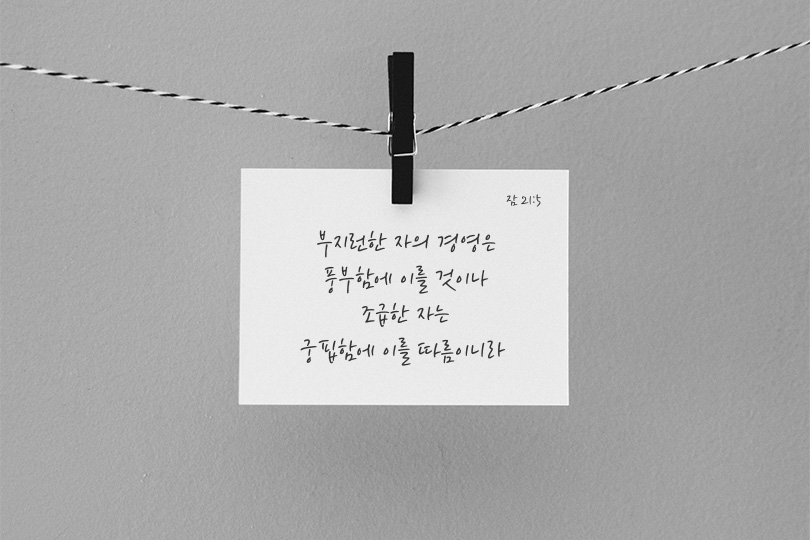 잠 21:5
부지런한 자의 경영은
풍부함에 이를 것이나
조급한 자는
궁핍함에 이를 따름이니라